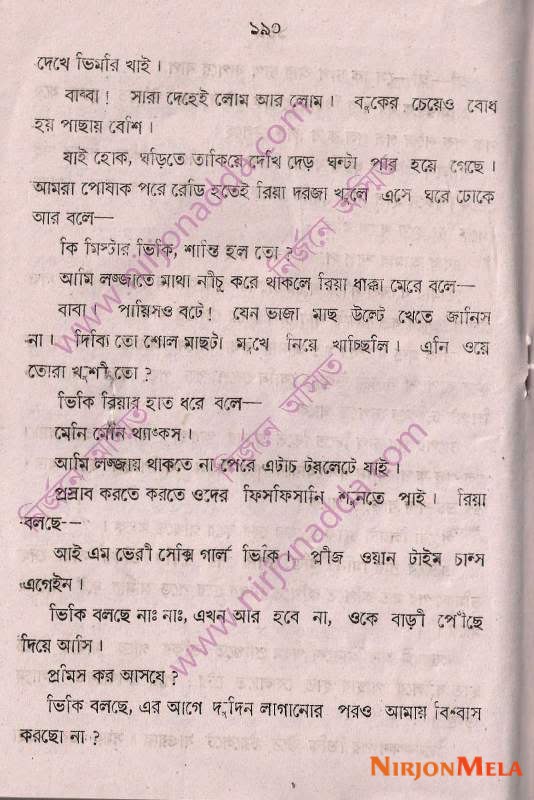 ১৯৩
দেখে ভির্মার খাই।
বাব্বা! সারা দেহেই লোম আর লোম। বুকের চেয়েও বোধ
হয় পাছায় বেশি।
যাই হোক, ঘড়িতে তাকিয়ে দেখি দেড় ঘন্টা পার হয়ে গেছে।
আমরা পোষাক পরে রেডি হতেই রিয়া দরজা খুলে এসে ঘরে ঢোকে
আর বলে—
কি মিস্টার ভিকি, শান্তি হল তো?
আমি লজ্জাতে মাথা নীচু করে থাকলে রিয়া ধাক্কা মেরে বলে—
বাবা পায়িসও বটে! যেন ভাজা মাছ উল্টে খেতে জানিস
না। দিব্যি তো শোল মাছটা মুখে নিয়ে খাচ্ছিলি। এনি ওয়ে
তোরা খুশী তো?
ভিকি রিয়ার হাত ধরে বলে—
মেনি মেনি থ্যাঙ্কস।
আমি লজ্জায় থাকতে না পেরে এটাচ টয়লেটে যাই।
প্রস্রাব করতে করতে ওদের ফিসফিসানি শুনতে পাই। রিয়া
বলছে--
আই এম ভেরী সেক্সি গার্ল ভিকি। প্লীজ ওয়ান টাইম চান্স
এগেইন।
ভিকি বলছে নাঃ নাঃ, এখন আর হবে না, ওকে বাড়ী পৌঁছে
দিয়ে আসি।
প্রমিস কর আসবে?
ভিকি বলছে, এর আগে দুদিন লাগানোর পরও আমায় বিশ্বাস
করছো না?
www.nirjonadda.com
নির্জনে অস্মিত
www.nirjonadda.com
নির্জনে অস্মিত
নির্জনে অস্মিত
NIRJONMELA